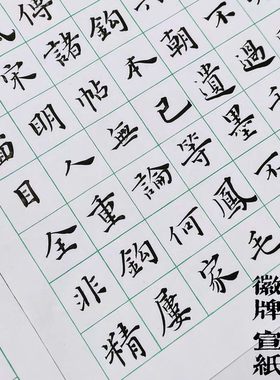 不過
朝遺墨不
鈎本已等鳳毛
傳諸帖無論何家
宋明人重鈎屢
面目全非精
徽牌宣紙